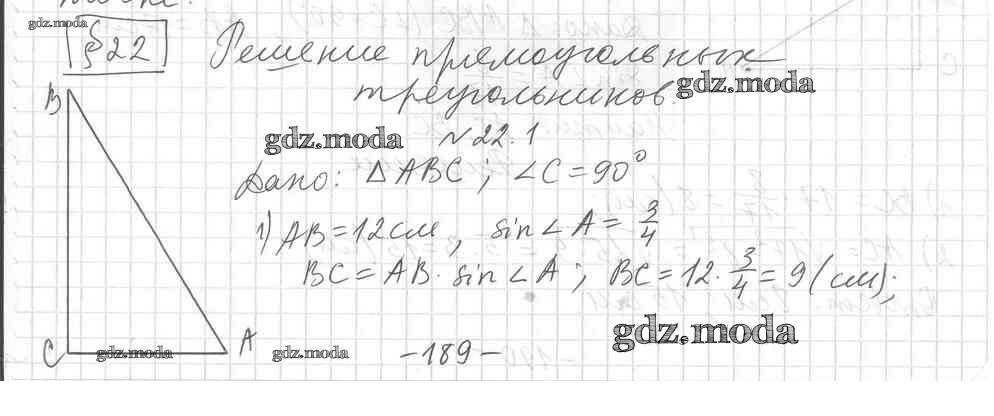 gdz.moda
§22 Решение прямоугольных
треугольников. gdz.moda
gdz.moda №22.1
Дано: △ABC; ∠C=90°
1) AB=12см, sin∠A=3/4
BC=AB·sin∠A; BC=12·3/4=9(см);
gdz.moda
B
C
A
gdz.moda
gdz.moda
-189-